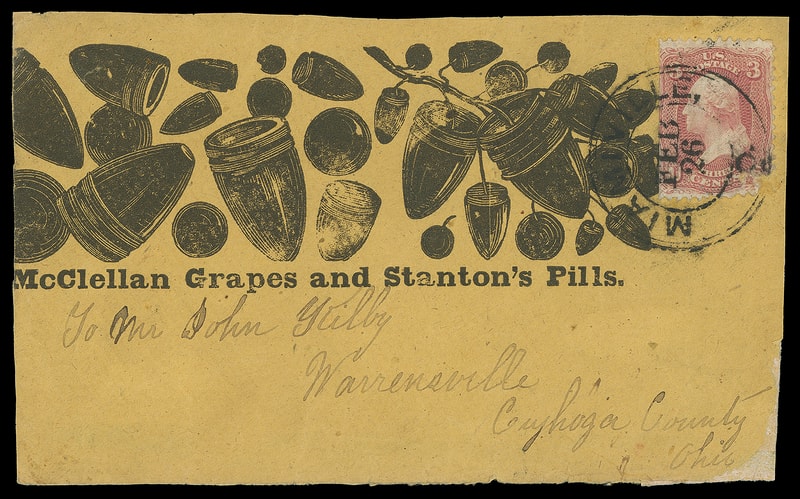 U.S.
POSTAGE 3
FEB
26
CENTS
McClellan Grapes and Stanton's Pills.
To Mr John Kilby
Warrensville
Cuyhoga County
Ohio